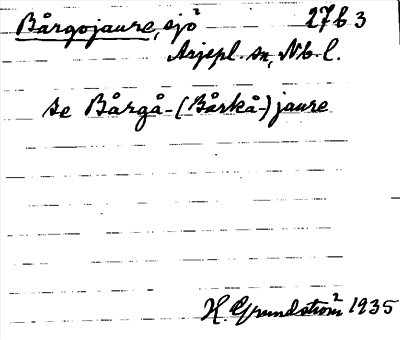 Bårgojaure, sjö² 27b3
Arjepl. sn, Nb l.
se Bårgå-(Bårkå-)jaure
H. Grundström² 1935